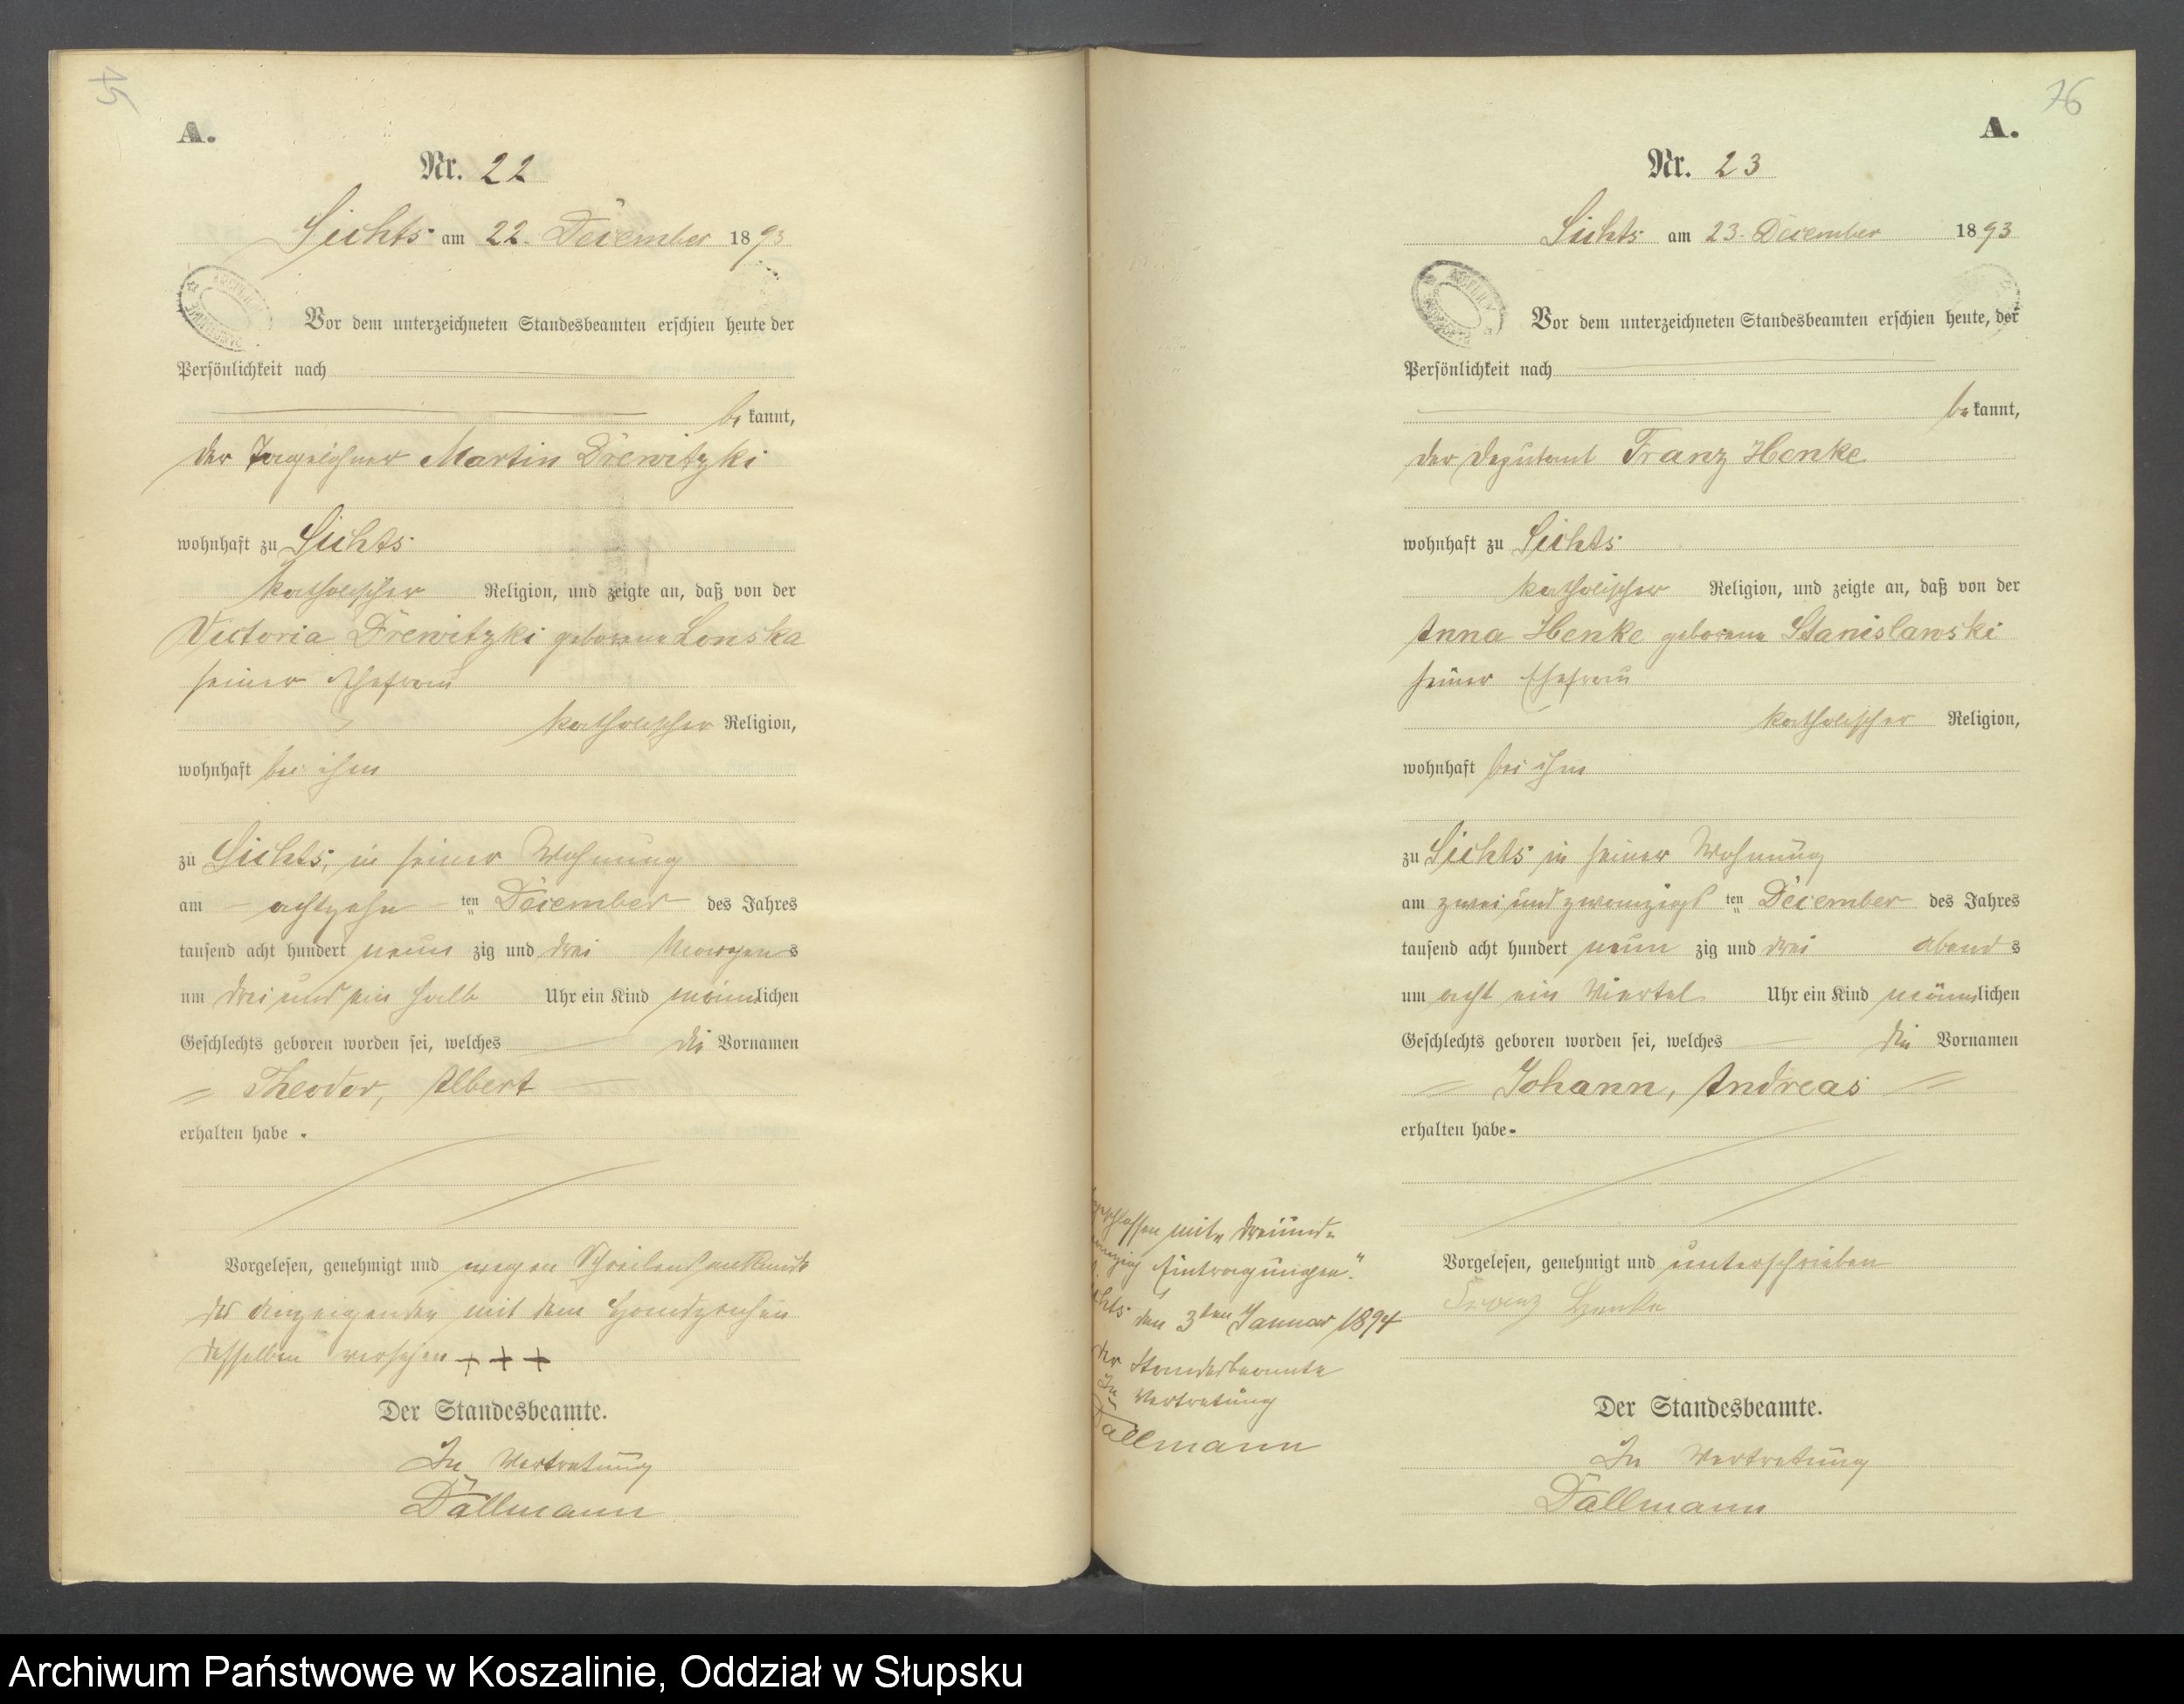 15
A.
Nr. 22
Sichts am 22. December 1893
Vor dem unterzeichneten Standesbeamten erschien heute der
Persönlichkeit nach
be kannt,
der Tagelöhner Martin Drewitzki
wohnhaft zu Sichts
katholischer Religion, und zeigte an, daß von der
Victoria Drewitzki geborene Lonska
seiner Ehefrau
katholischer Religion,
wohnhaft bei ihm
zu Sichts, in seiner Wohnung
am achtzehn ten December des Jahres
tausend acht hundert neun zig und drei Morgens
um drei und ein halb Uhr ein Kind männlichen
Geschlechts geboren worden sei, welches die Vornamen
Theodor, Albert
erhalten habe.
Vorgelesen, genehmigt und wegen Schreibensunkunde
des Anzeigenden mit dem Handzeichen
desselben versehen + + +
Der Standesbeamte.
In Vertretung
Dallmann
76
A.
Nr. 23
Sichts am 23. December 1893
Vor dem unterzeichneten Standesbeamten erschien heute, der
Persönlichkeit nach
be kannt,
der Deputant Franz Henke
wohnhaft zu Sichts
katholischer Religion, und zeigte an, daß von der
Anna Henke geborene Stanislawski
seiner Ehefrau
katholischer Religion,
wohnhaft bei ihm
zu Sichts in seiner Wohnung
am zwei und zwanzigst ten December des Jahres
tausend acht hundert neun zig und drei Abends
um acht ein Viertel Uhr ein Kind männlichen
Geschlechts geboren worden sei, welches die Vornamen
Johann, Andreas
erhalten habe.
Vorgelesen, genehmigt und unterschrieben
Franz Henke
Der Standesbeamte.
In Vertretung
Dallmann
mit "dreiund-
Eintragungen".
den 3ten Januar 1894
Der Standesbeamte
In Vertretung
Dallmann
Archiwum Państwowe w Koszalinie, Oddział w Słupsku